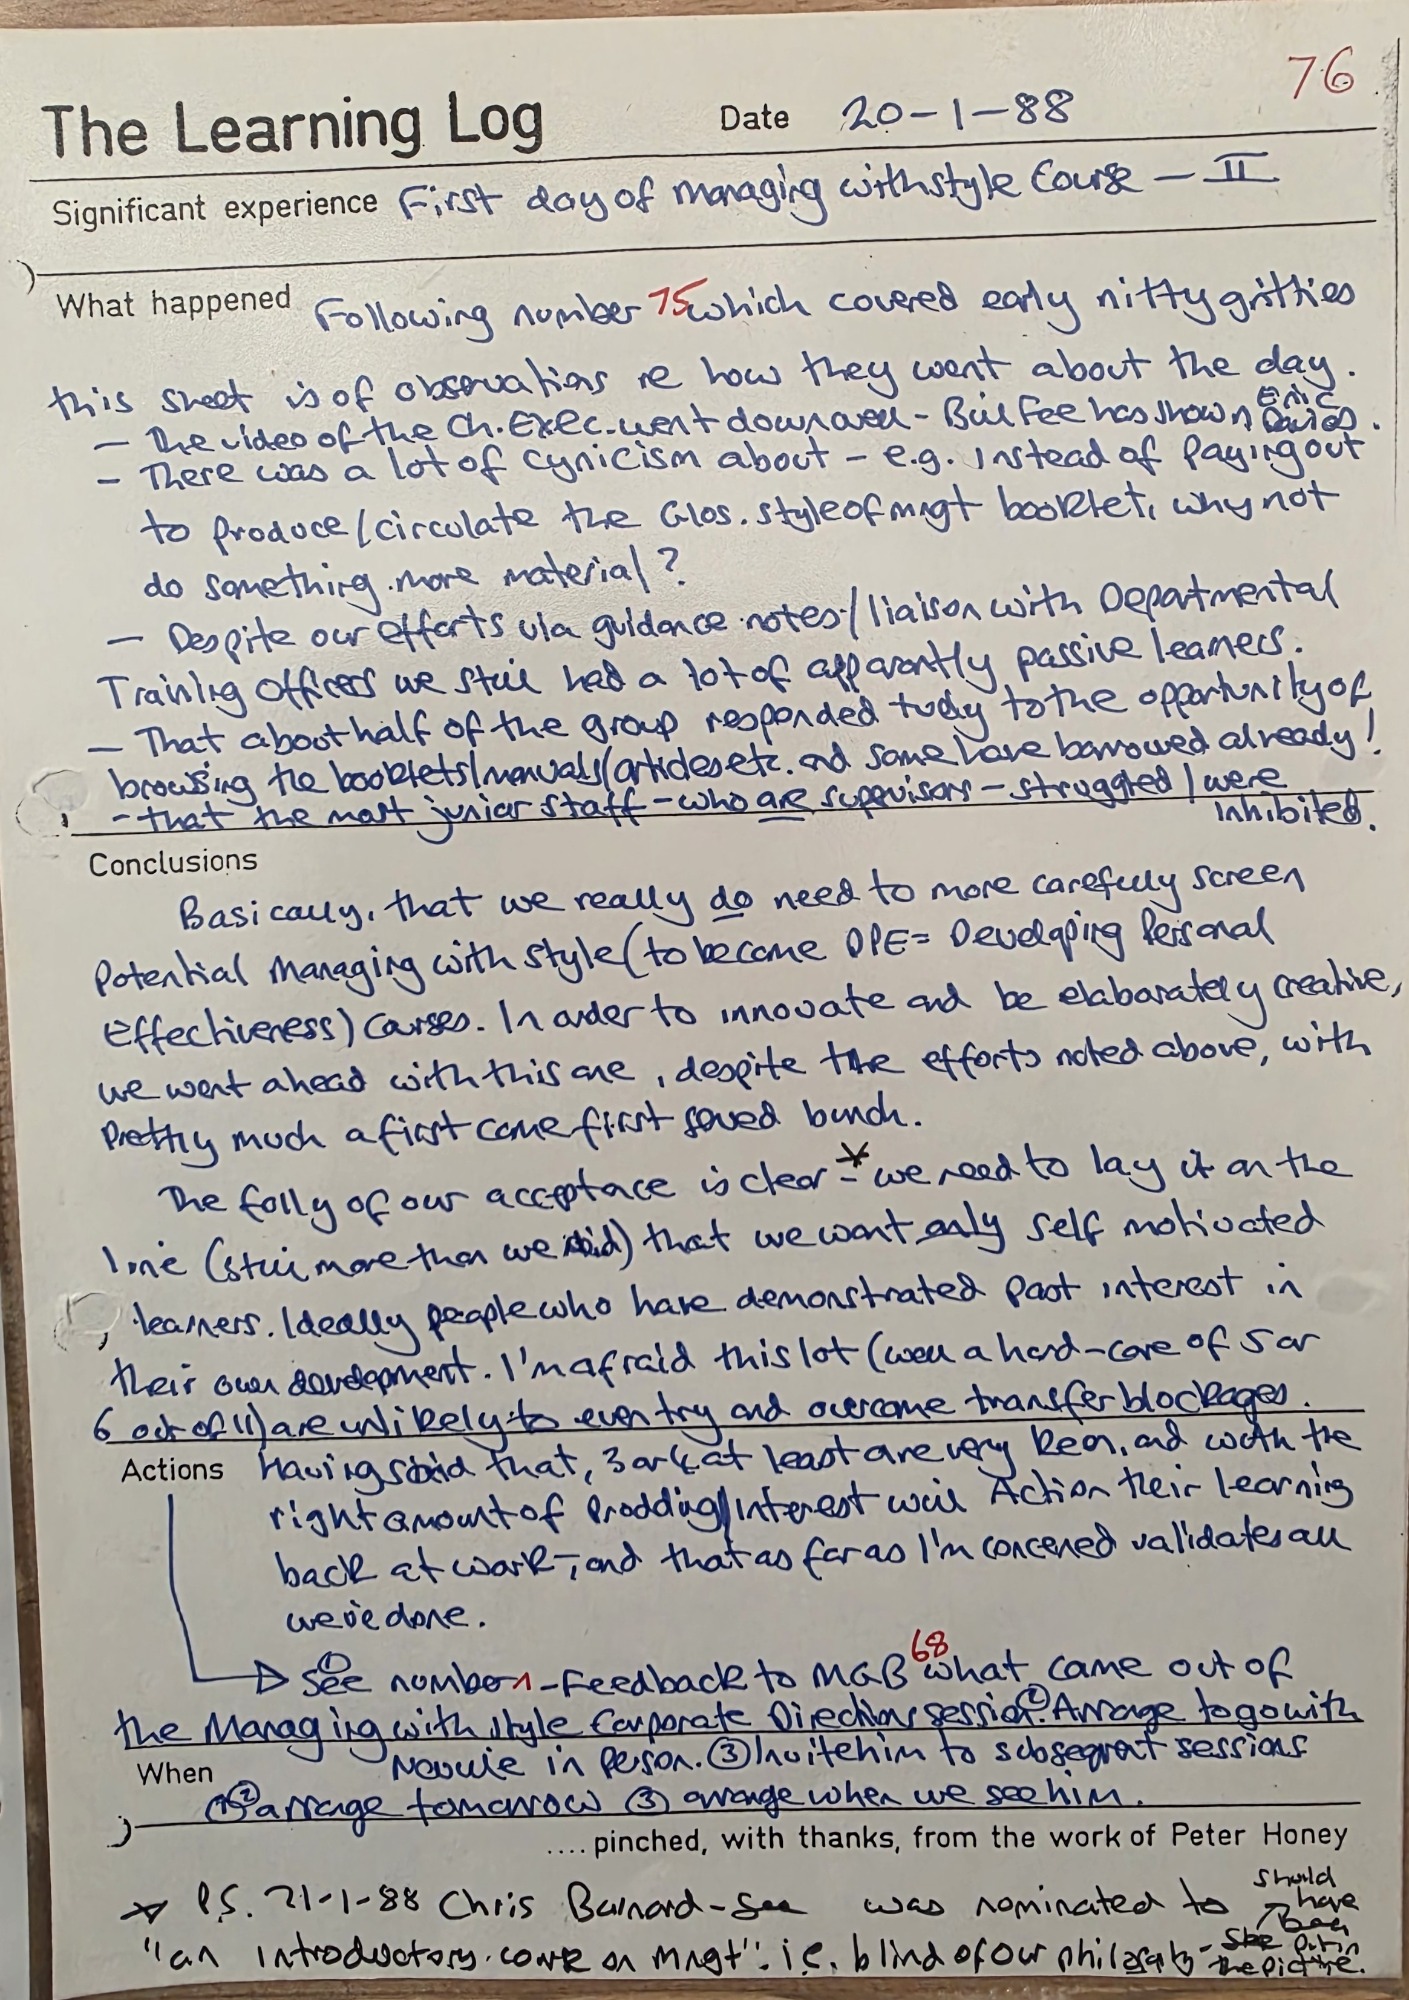 76
The Learning Log Date 20-1-88
Significant experience First day of managing with style Course - II
What happened Following number 75 which covered early nitty gritties
this sheet is of observations re how they went about the day.
- The video of the Ch. Exec. went down well - Bill Fee has shown Eric Davies.
- There was a lot of cynicism about - e.g. instead of paying out
to produce/circulate the Glos. style of mngt booklet, why not
do something more material?
- Despite our efforts via guidance notes/liaison with Departmental
Training Officers we still had a lot of apparently passive learners.
- That about half of the group responded to the opportunity of
browsing the booklets/manuals/articles etc. and some have borrowed already!
- that the most junior staff - who are supervisors - struggled / were
inhibited.
Conclusions
Basically, that we really do need to more carefully screen
potential managing with style (to become DPE = Developing Personal
Effectiveness) courses. In order to innovate and be elaborately creative,
we went ahead with this one, despite the efforts noted above, with
pretty much a first come first served bunch.
The folly of our acceptance is clear - * we need to lay it on the
line (still more than we did) that we want only self motivated
learners. Ideally people who have demonstrated past interest in
their own development. I'm afraid this lot (well a hard-core of 5 or
6 out of 11) are unlikely to even try and overcome transfer blockages.
Actions Having said that, 3 or 4 at least are very keen, and with the
right amount of prodding/interest will Action their learning
back at work -, and that as far as I'm concerned validates all
we've done.
① See number 68 - Feedback to MGB what came out of
the Managing with style Corporate Directions session. ② Arrange to go with
in person. ③ Invite him to subsequent sessions
When ① ② arrange tomorrow ③ arrange when we see him.
.... pinched, with thanks, from the work of Peter Honey
* P.S. 21-1-88 Chris Barnard - was nominated to
"an introductory course on mngt": i.e. blind of our philosophy -
should have been put in the picture.